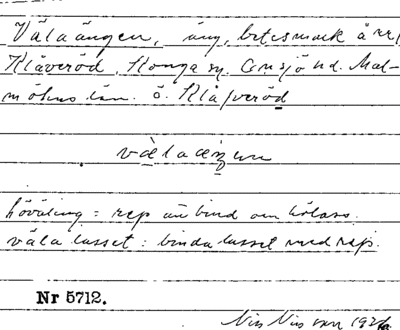 Välaängen, äng, betesmark å nr 1
Klåveröd, Konga sn. Onsjö hd. Mal-
möhus län. ö. Klåveröd
höväling = rep att bind om hölass.
väla lasset : binda lasset med rep.
Nr 5712.
Nils Nilsson